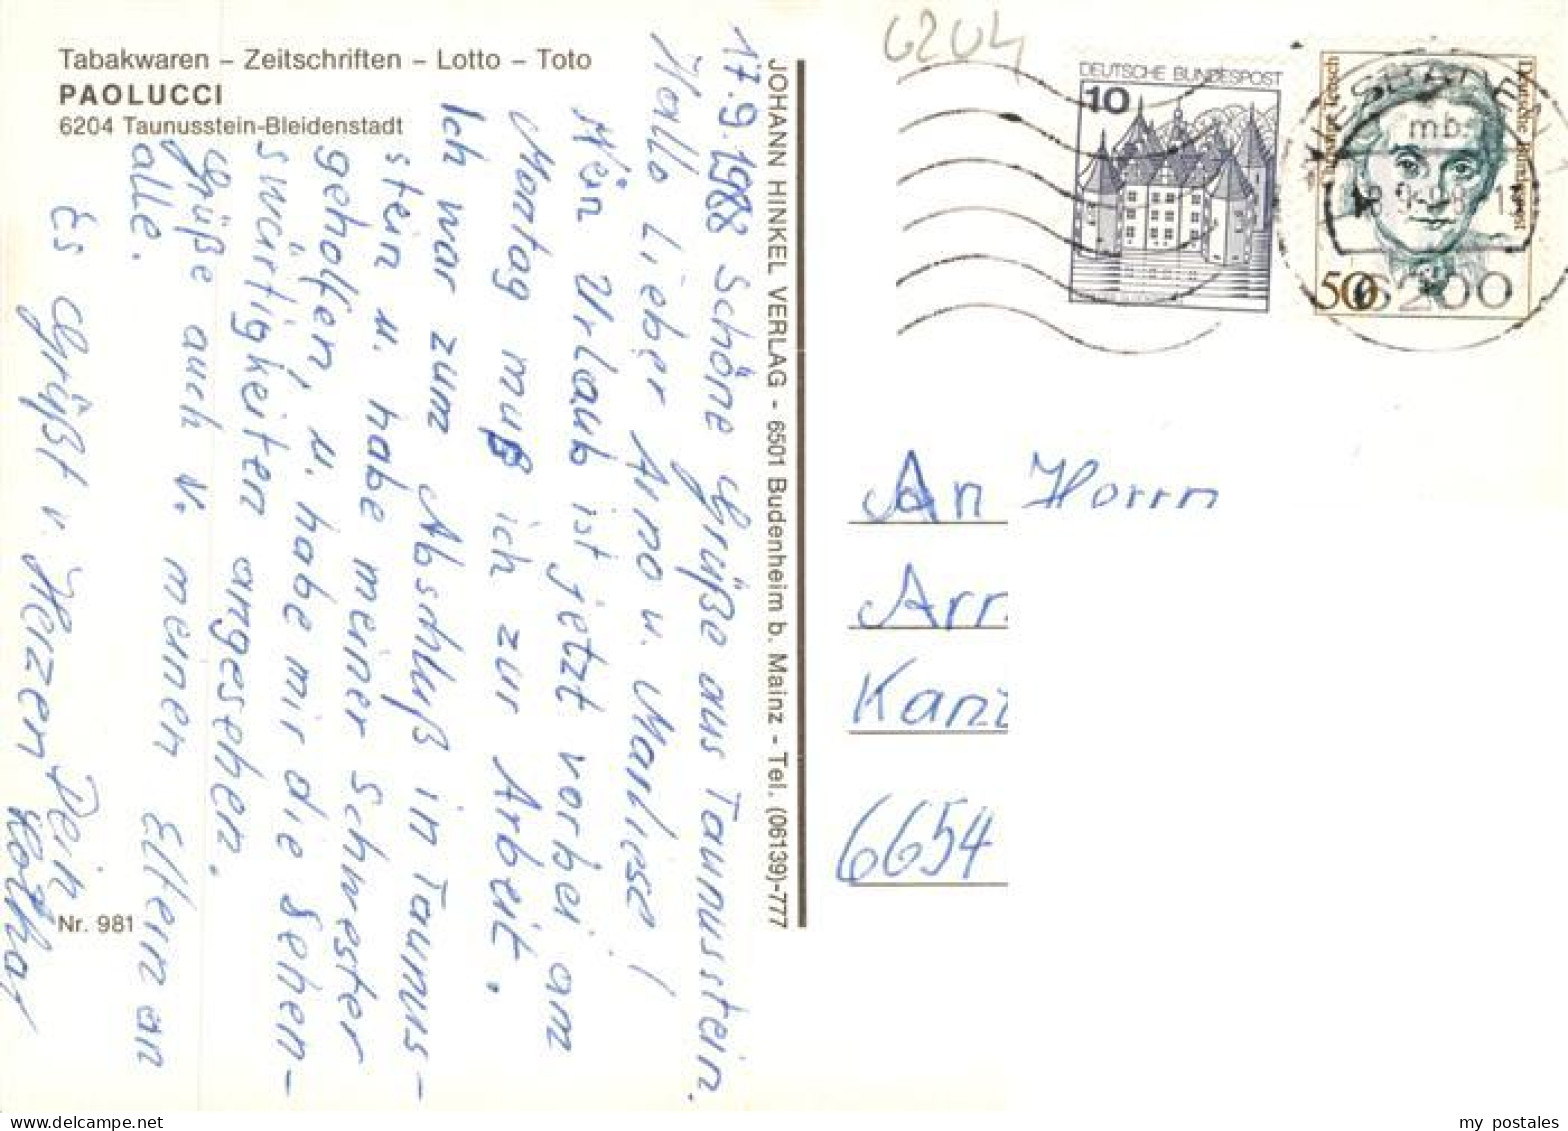 Tabakwaren – Zeitschriften – Lotto – Toto
PAOLUCCI
6204 Taunusstein-Bleidenstadt
17.9.1988 Schöne Grüße aus Taunusstein.
Hallo Lieber Arno u. Marliese!
Mein Urlaub ist jetzt vorbei am
Montag muß ich zur Arbeit.
Ich war zum Abschluß in Taunus-
stein u. habe meiner Schwester
geholfen, u. habe mir die Sehen-
swürtigkeiten angesehen.
Grüße auch v. meinen Eltern an
alle.
Es Grüßt v. Herzen Dein
Nr. 981
JOHANN HINKEL VERLAG - 6501 Budenheim b. Mainz - Tel. (06139)-777
6204
DEUTSCHE BUNDESPOST
10
Deutsche Bundespost
50
mb
6200
An Herrn
Arr
Kani
6654
my postales